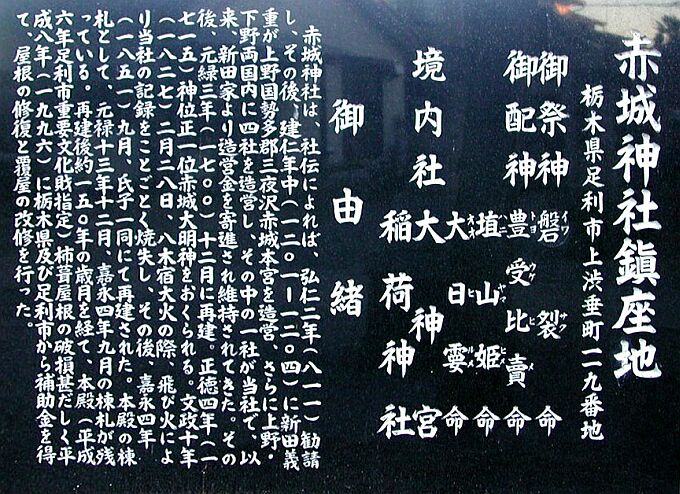 赤城神社鎮座地
栃木県足利市上渋垂町一一九番地
御祭神 磐裂命
イワ サク
御配神 豊受比賣命
トヨウケヒメ
埴山姫命
ハニヤマヒメ
大日孁命
オオヒルメ
境内社 大神宮
稲荷神社
御由緒
赤城神社は、社伝によれば、弘仁二年(八一一)勧請
し、その後、建仁年中(一二〇一ー一二〇四)に新田義
重が上野国勢多郡三夜沢赤城本宮を造営、さらに上野・
下野両国内に四社を造営し、その中の一社が当社で、以
来、新田家より造営金を寄進され維持されてきた。その
後、元緑三年(一七〇〇)十二月に再建。正徳四年(一
七一五)神位正一位赤城大明神をおくられる。文政十年
(一八二七)二月二八日、八木宿大火の際、飛び火によ
り当社の記録をことごとく焼失し、その後、嘉永四年
(一八五一)九月、氏子一同にて再建された。本殿の棟
札として、元禄十三年十二月、嘉永四年九月の棟札が残
っている。再建後約一五〇年の歳月を経て、本殿(平成
六年足利市重要文化財指定)柿葺屋根の破損甚だしく平
成八年(一九九六)に栃木県及び足利市から補助金を得
て、屋根の修復と覆屋の改修を行った。